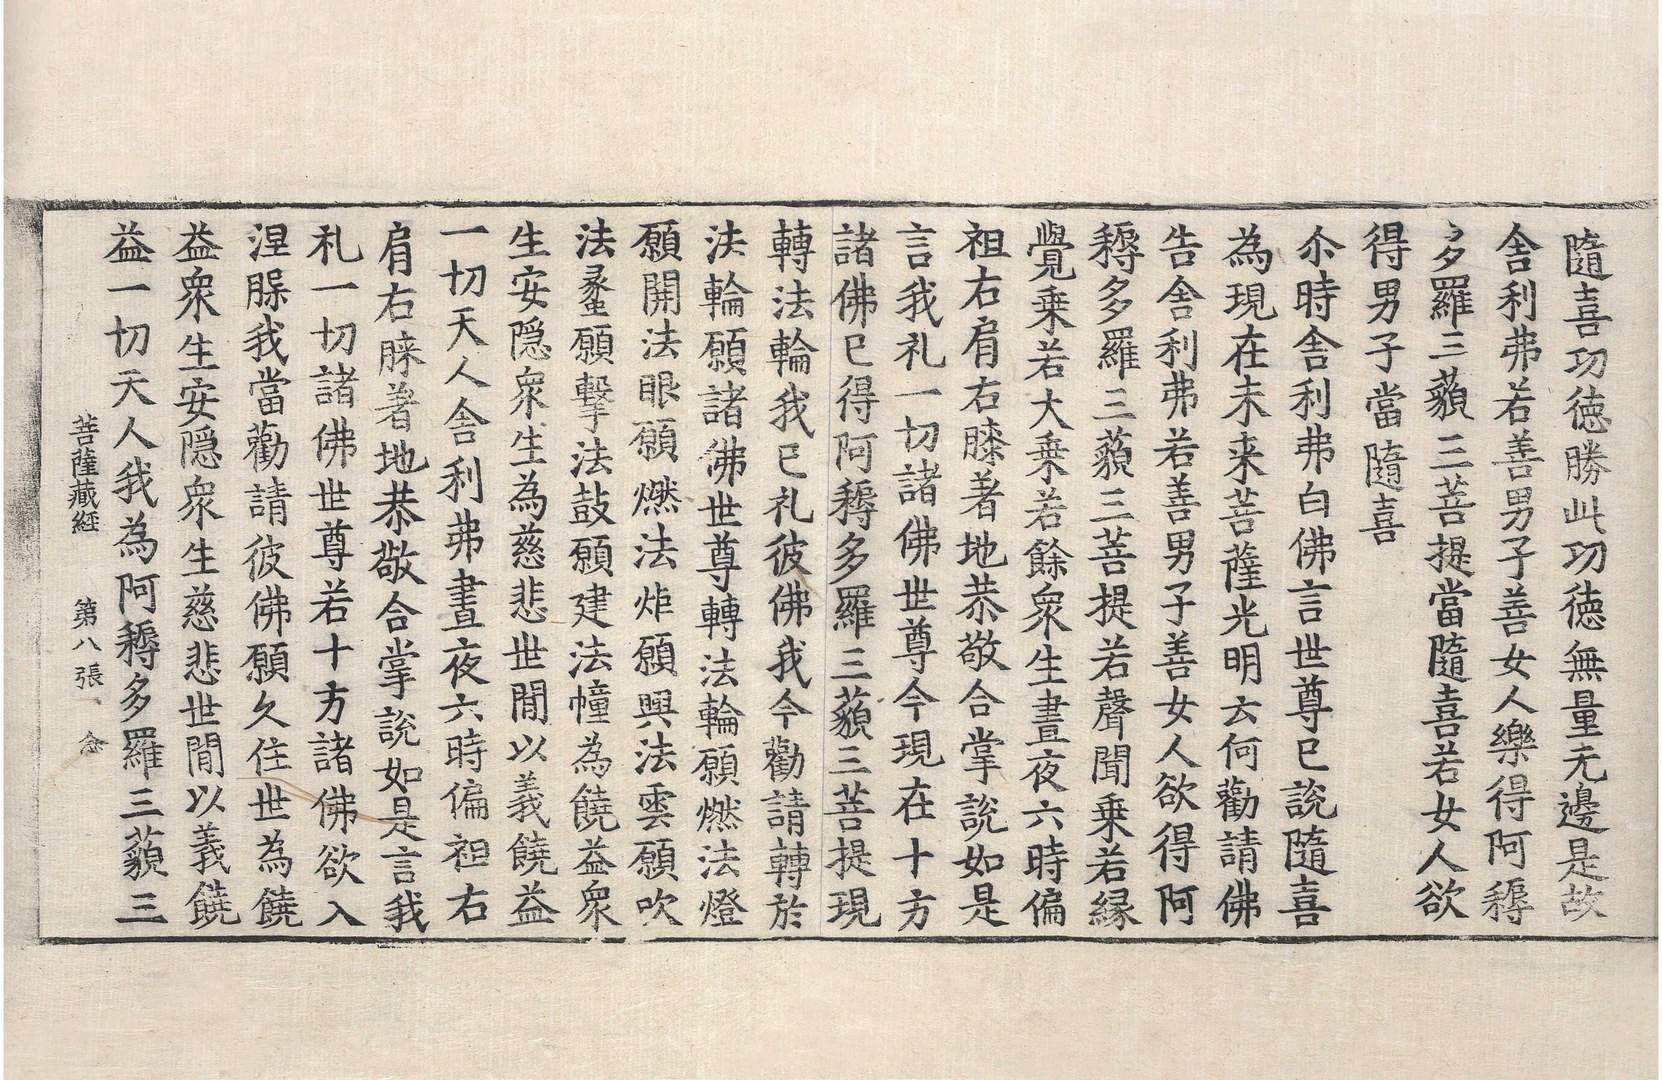 隨喜功徳勝此功徳無量无邊是故
舍利弗若善男子善女人樂得阿耨
多羅三藐三菩提當隨喜若女人欲
得男子當隨喜
尒時舍利弗白佛言世尊已説隨喜
為現在未来菩薩光明云何勸請佛
告舍利弗若善男子善女人欲得阿
耨多羅三藐三菩提若聲聞乗若縁
覺乗若大乗若餘衆生晝夜六時偏
袒右肩右膝著地恭敬合掌説如是
言我礼一切諸佛世尊今現在十方
諸佛已得阿耨多羅三藐三菩提現
轉法輪我已礼彼佛我今勸請轉於
法輪願諸佛世尊轉法輪願燃法燈
願開法眼願燃法炬願興法雲願吹
法蠡願擊法鼓願建法幢為饒益衆
生安隱衆生為慈悲世間以義饒益
一切天人舍利弗晝夜六時偏袒右
肩右膝著地恭敬合掌説如是言我
礼一切諸佛世尊若十方諸佛欲入
涅槃我當勸請彼佛願久住世為饒
益衆生安隱衆生慈悲世間以義饒
益一切天人我為阿耨多羅三藐三
菩薩藏經 第八張 念